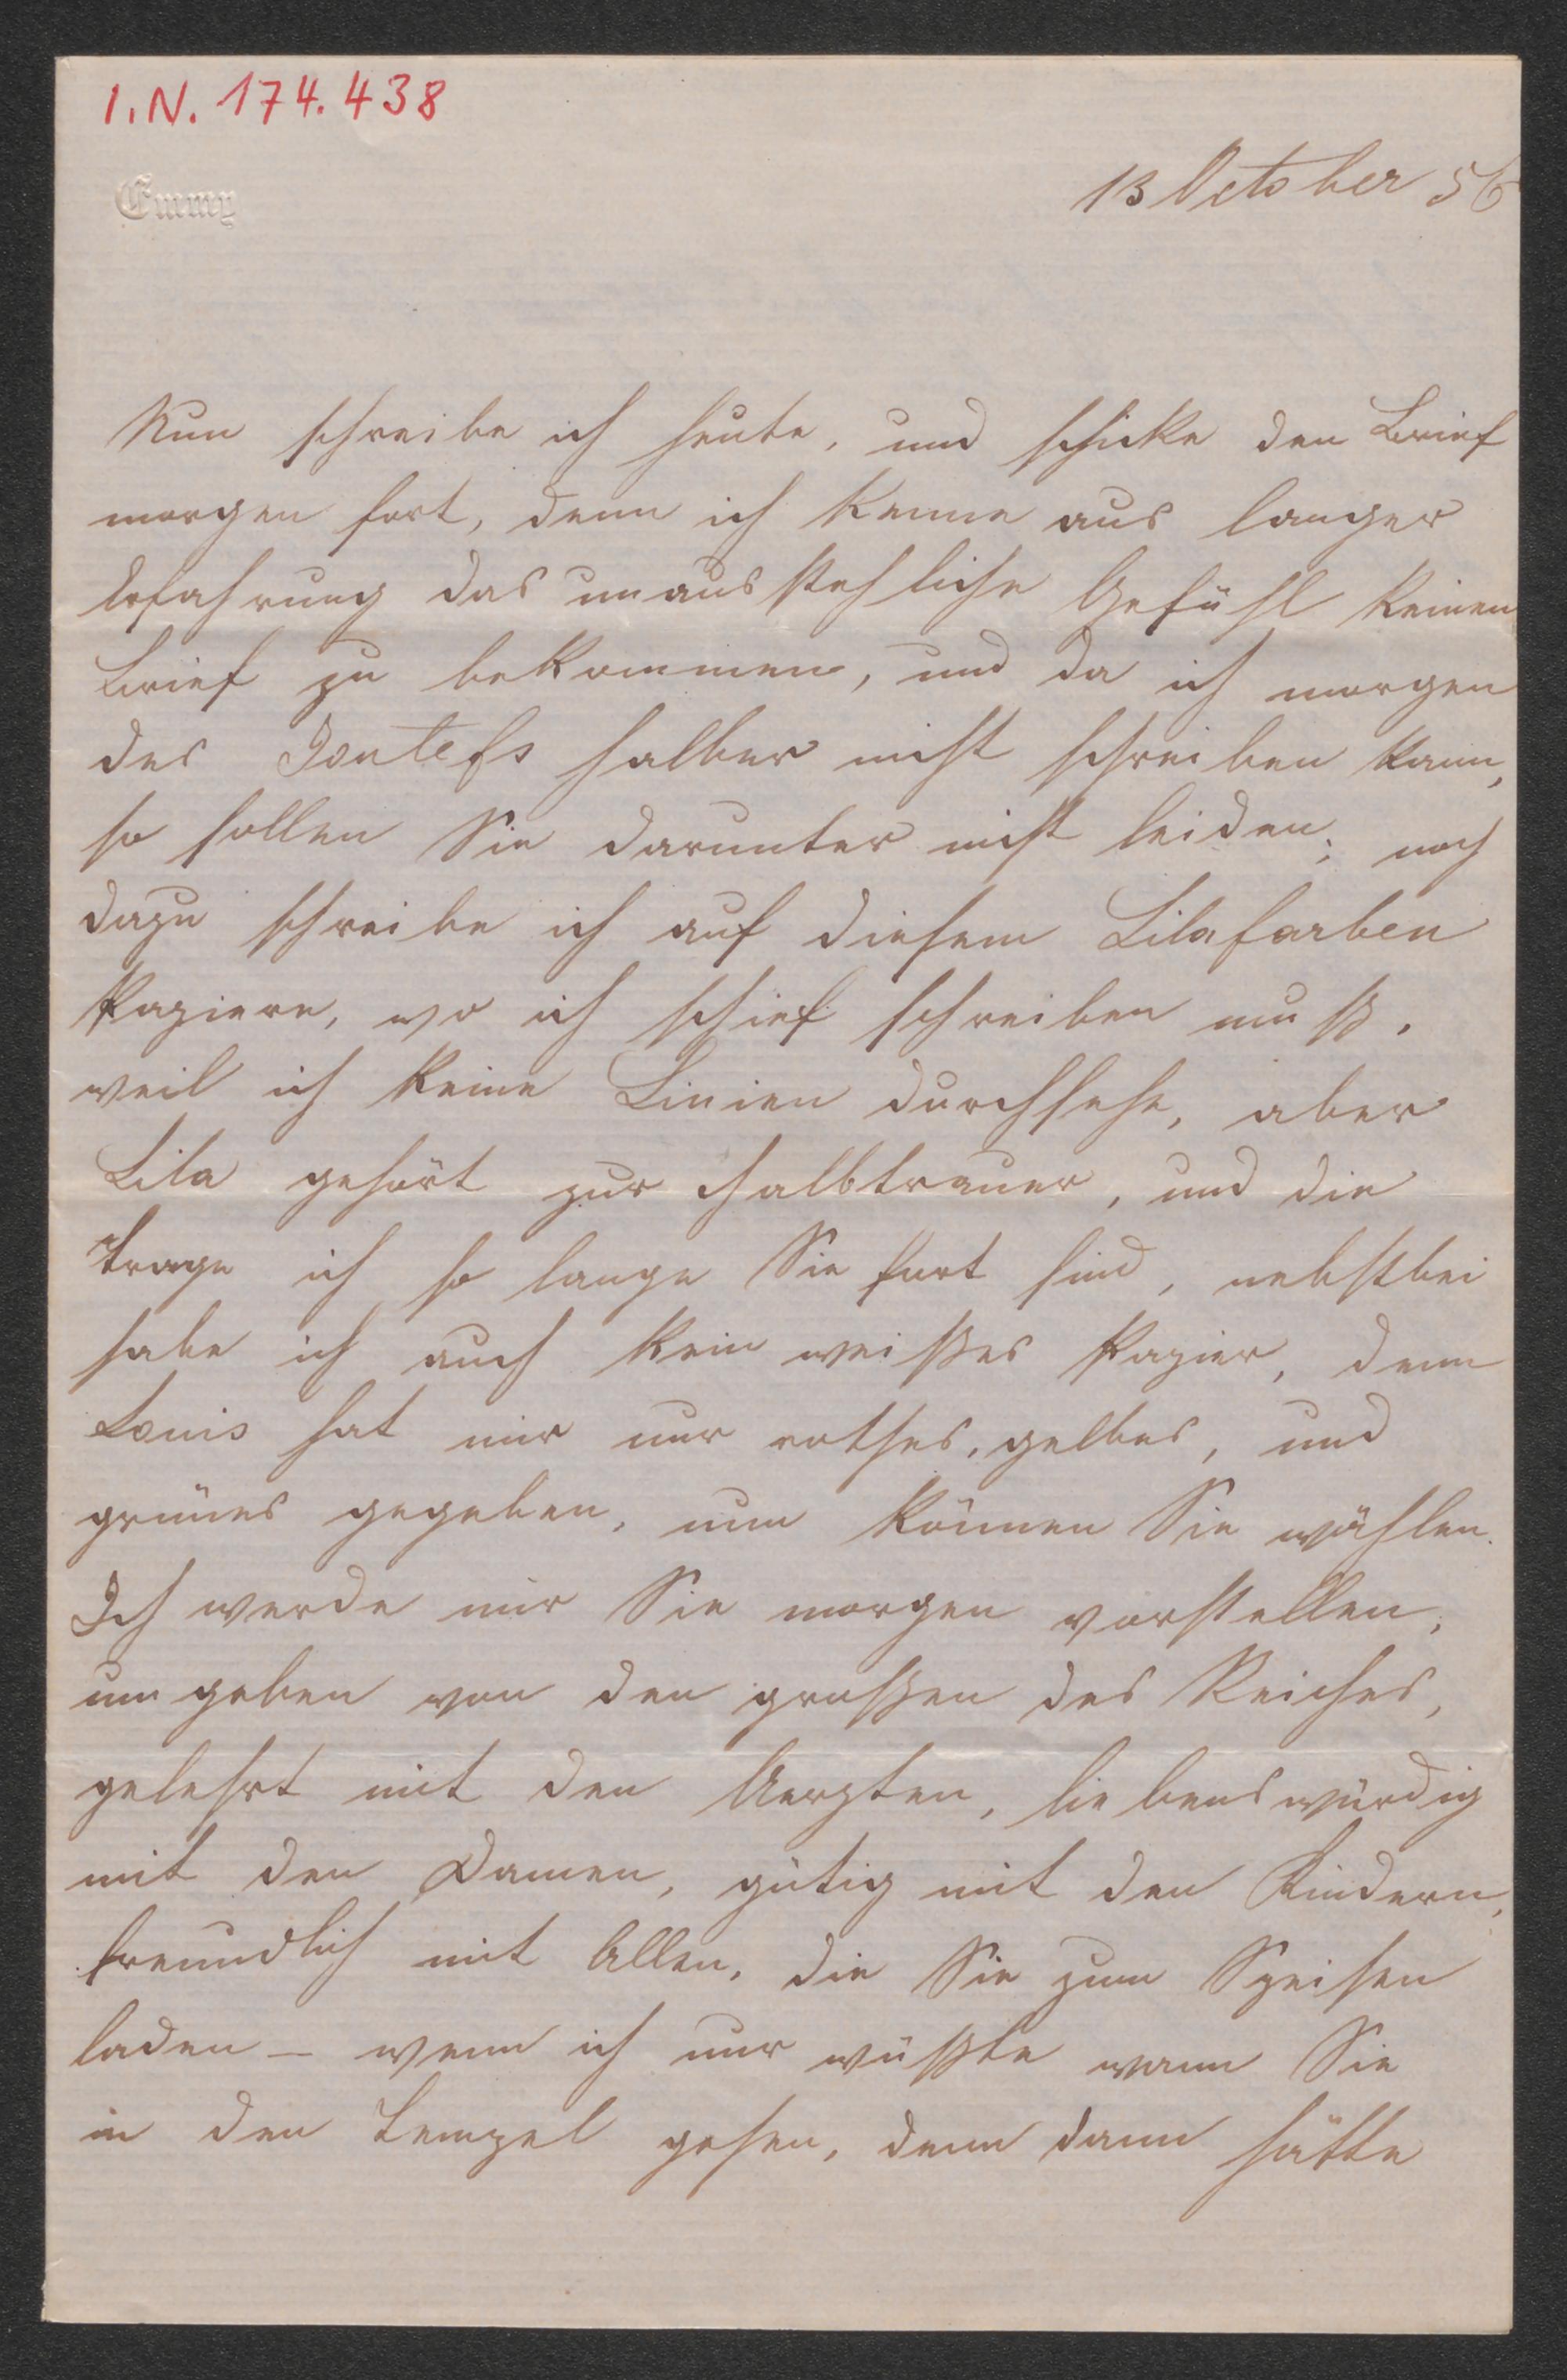 I.N. 174.438
Emmy
13 October 56
Nun schreibe ich heute, und schicke den Brief
morgen fort, denn ich kenne aus langer
Erfahrung das unausstehliche Gefühl keinen
Brief zu bekommen, und da ich morgen
des Jontefs halber nicht schreiben kann,
so sollen Sie darunter nicht leiden; noch
dazu schreibe ich auf diesem Lilafarben
Papiere, wo ich schief schreiben muß,
weil ich keine Linien durchsehe, aber
Lila gehört zur Halbtrauer, und die
trage ich so lange Sie fort sind, nebstbei
habe ich auch kein weißes Papier, denn
Louis hat mir nur rothes, gelbes, und
grünes gegeben, nun können Sie wählen.
Ich werde mir Sie morgen vorstellen,
umgeben von den großen des Reiches,
gelehrt mit den Aerzten, liebenswürdig
mit den Damen, gütig mit den Kindern,
freundlich mit Allen, die Sie zum Speisen
laden – wenn ich nur wüßte wann Sie
in den Tempel gehen, denn dann hätte